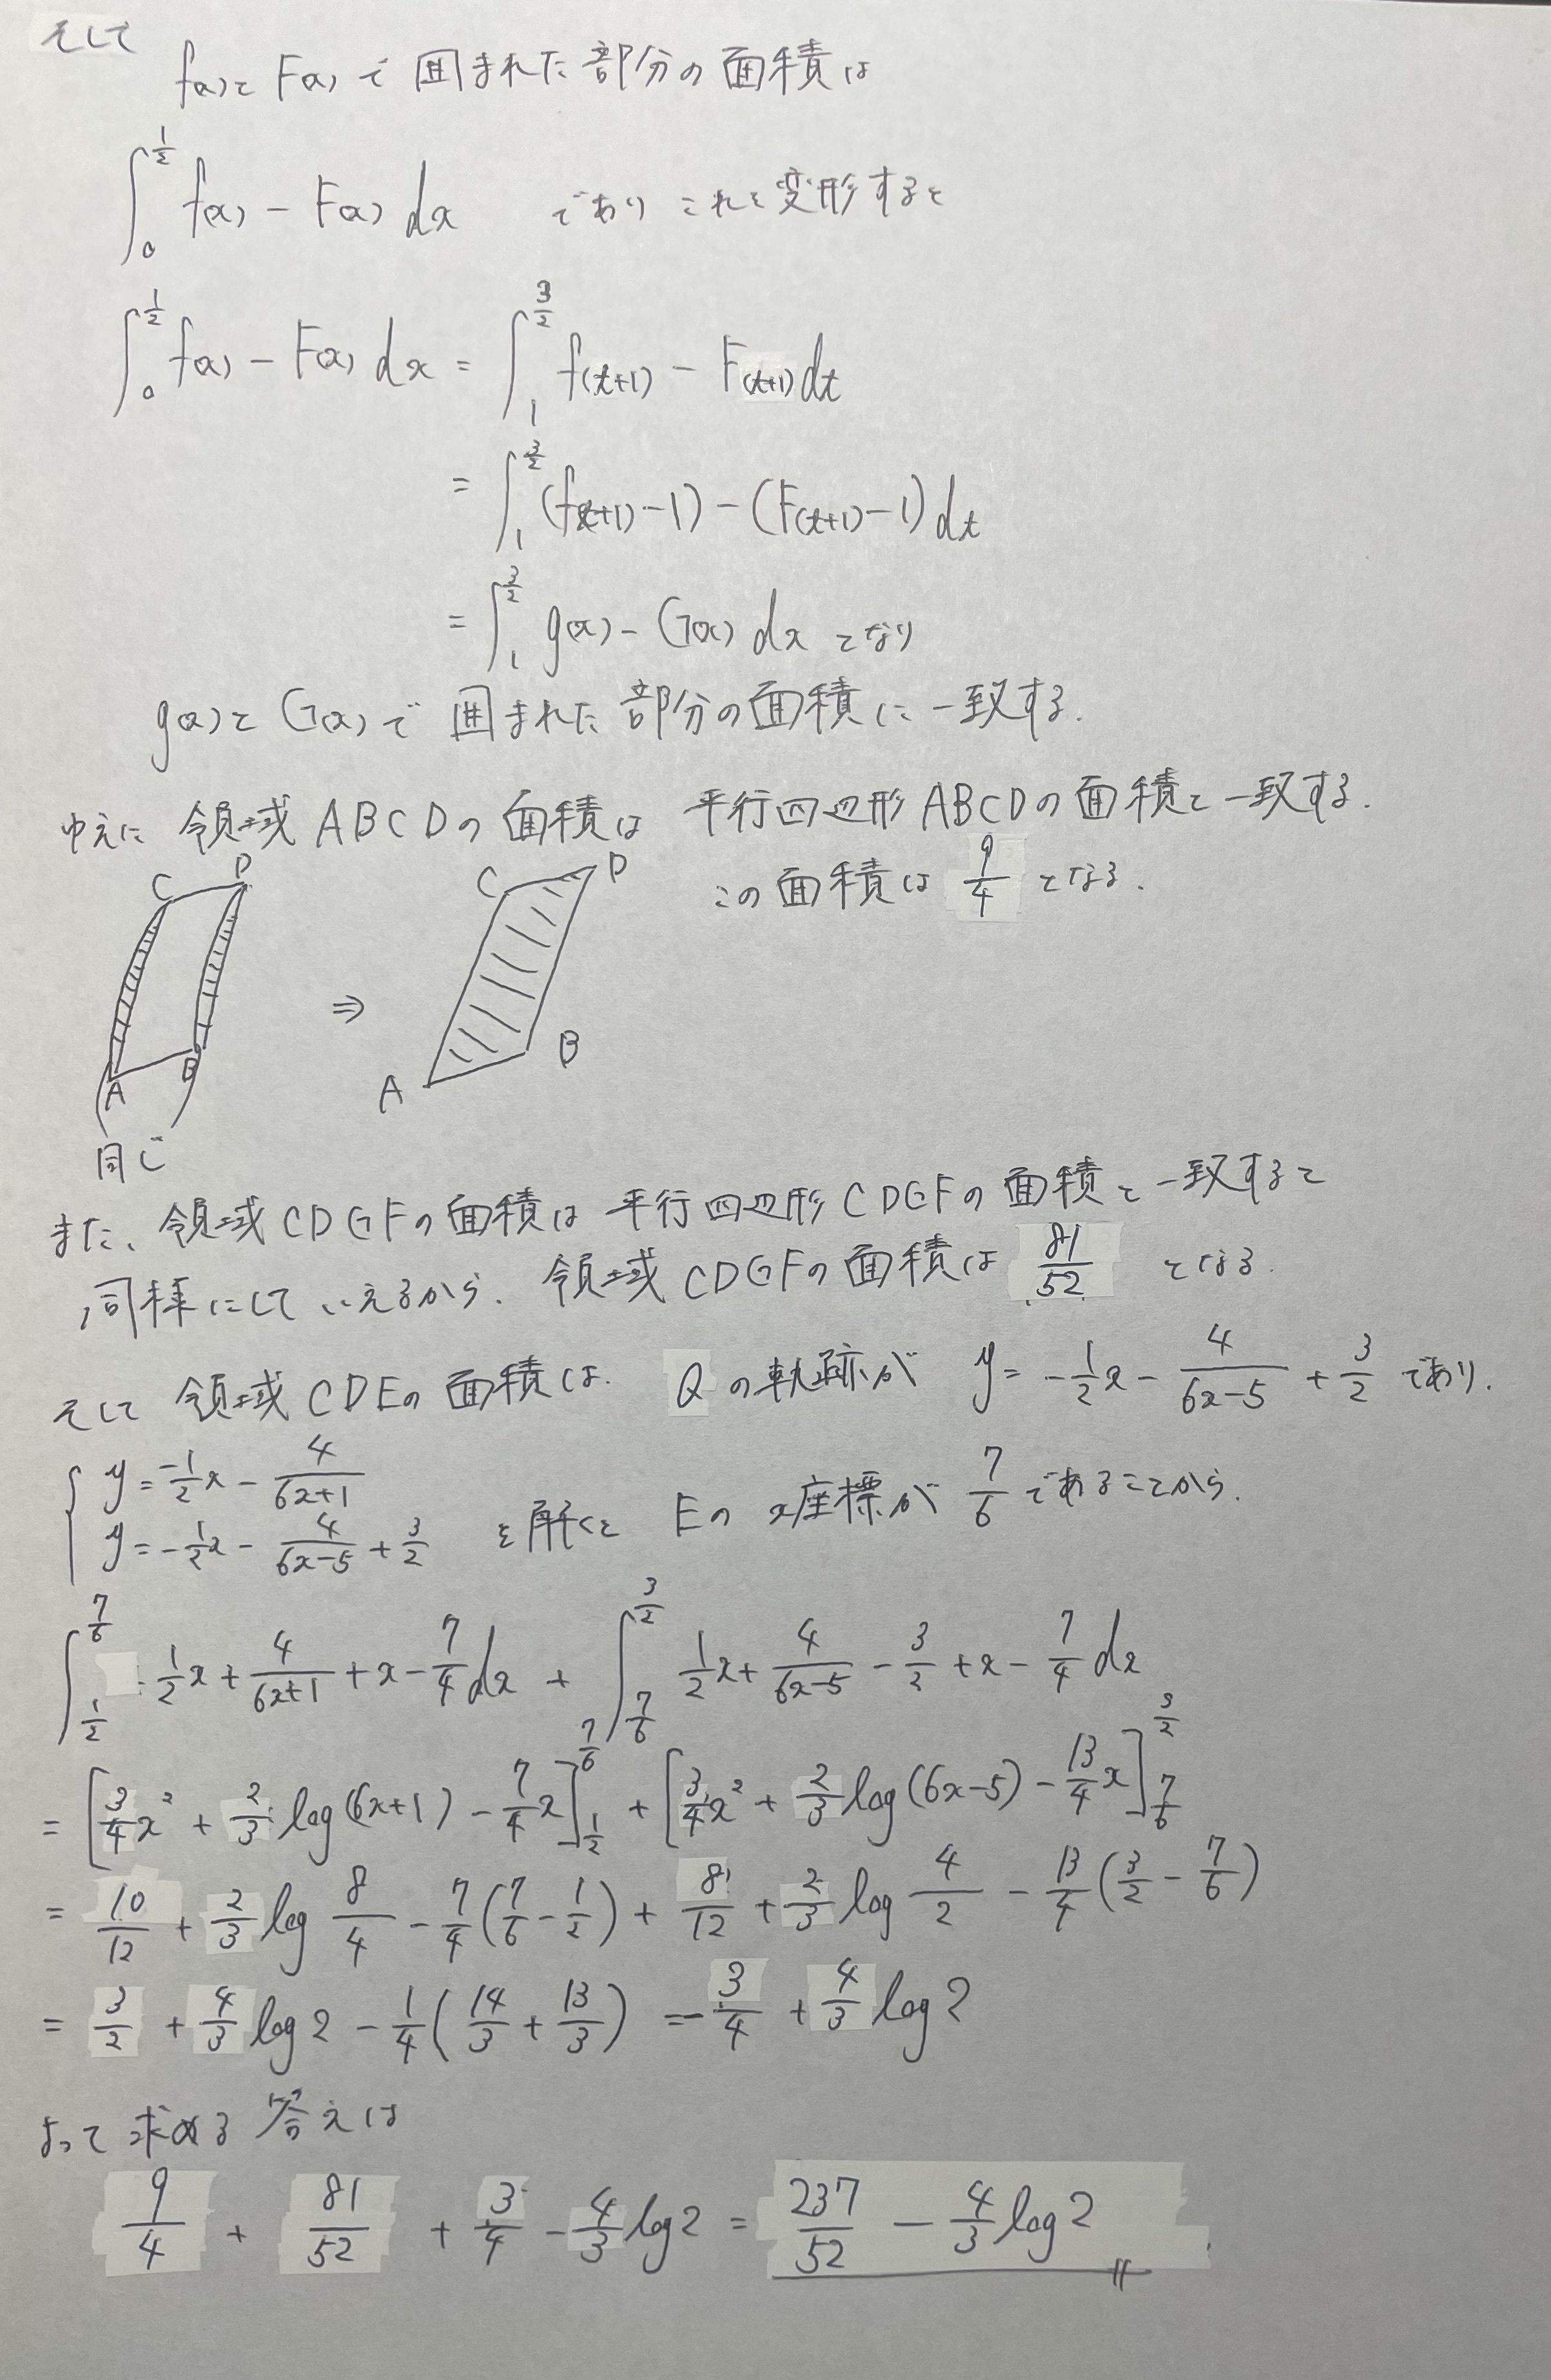 そして
f(x)とF(x)で囲まれた部分の面積は
∫_0^{1/2} f(x) − F(x) dx であり これを変形すると
∫_0^{1/2} f(x) − F(x) dx = ∫_1^{3/2} f(t+1) − F(t+1) dt
= ∫_1^{3/2} (f(t+1)−1) − (F(t+1)−1) dt
= ∫_1^{3/2} g(x) − G(x) dx となり
g(x)とG(x)で囲まれた部分の面積に一致する.
ゆえに 領域ABCDの面積は 平行四辺形ABCDの面積と一致する.
この面積は 9/4 となる.
C D A B ⇒ C D A B
同じ
また、領域CDGFの面積は平行四辺形CDGFの面積と一致すると
同様にしていえるから. 領域CDGFの面積は 81/52 となる.
そして 領域CDEの面積は. Qの軌跡が y = −1/2 x − 4/(6x−5) + 3/2 であり.
y = −1/2 x − 4/(6x+1)
y = −1/2 x − 4/(6x−5) + 3/2 を解くと Eのx座標が 7/6 であることから.
∫_{1/2}^{7/6} 1/2 x + 4/(6x+1) + x − 7/4 dx + ∫_{7/6}^{3/2} 1/2 x + 4/(6x−5) − 3/2 + x − 7/4 dx
= [3/4 x² + 2/3 log(6x+1) − 7/4 x]_{1/2}^{7/6} + [3/4 x² + 2/3 log(6x−5) − 13/4 x]_{7/6}^{3/2}
= 10/12 + 2/3 log 8/4 − 7/4 (7/6 − 1/2) + 8/12 + 2/3 log 4/2 − 13/4 (3/2 − 7/6)
= 3/2 + 4/3 log2 − 1/4 (14/3 + 13/3) = −3/4 + 4/3 log2
よって求める答えは
9/4 + 81/52 + 3/4 − 4/3 log2 = 237/52 − 4/3 log2